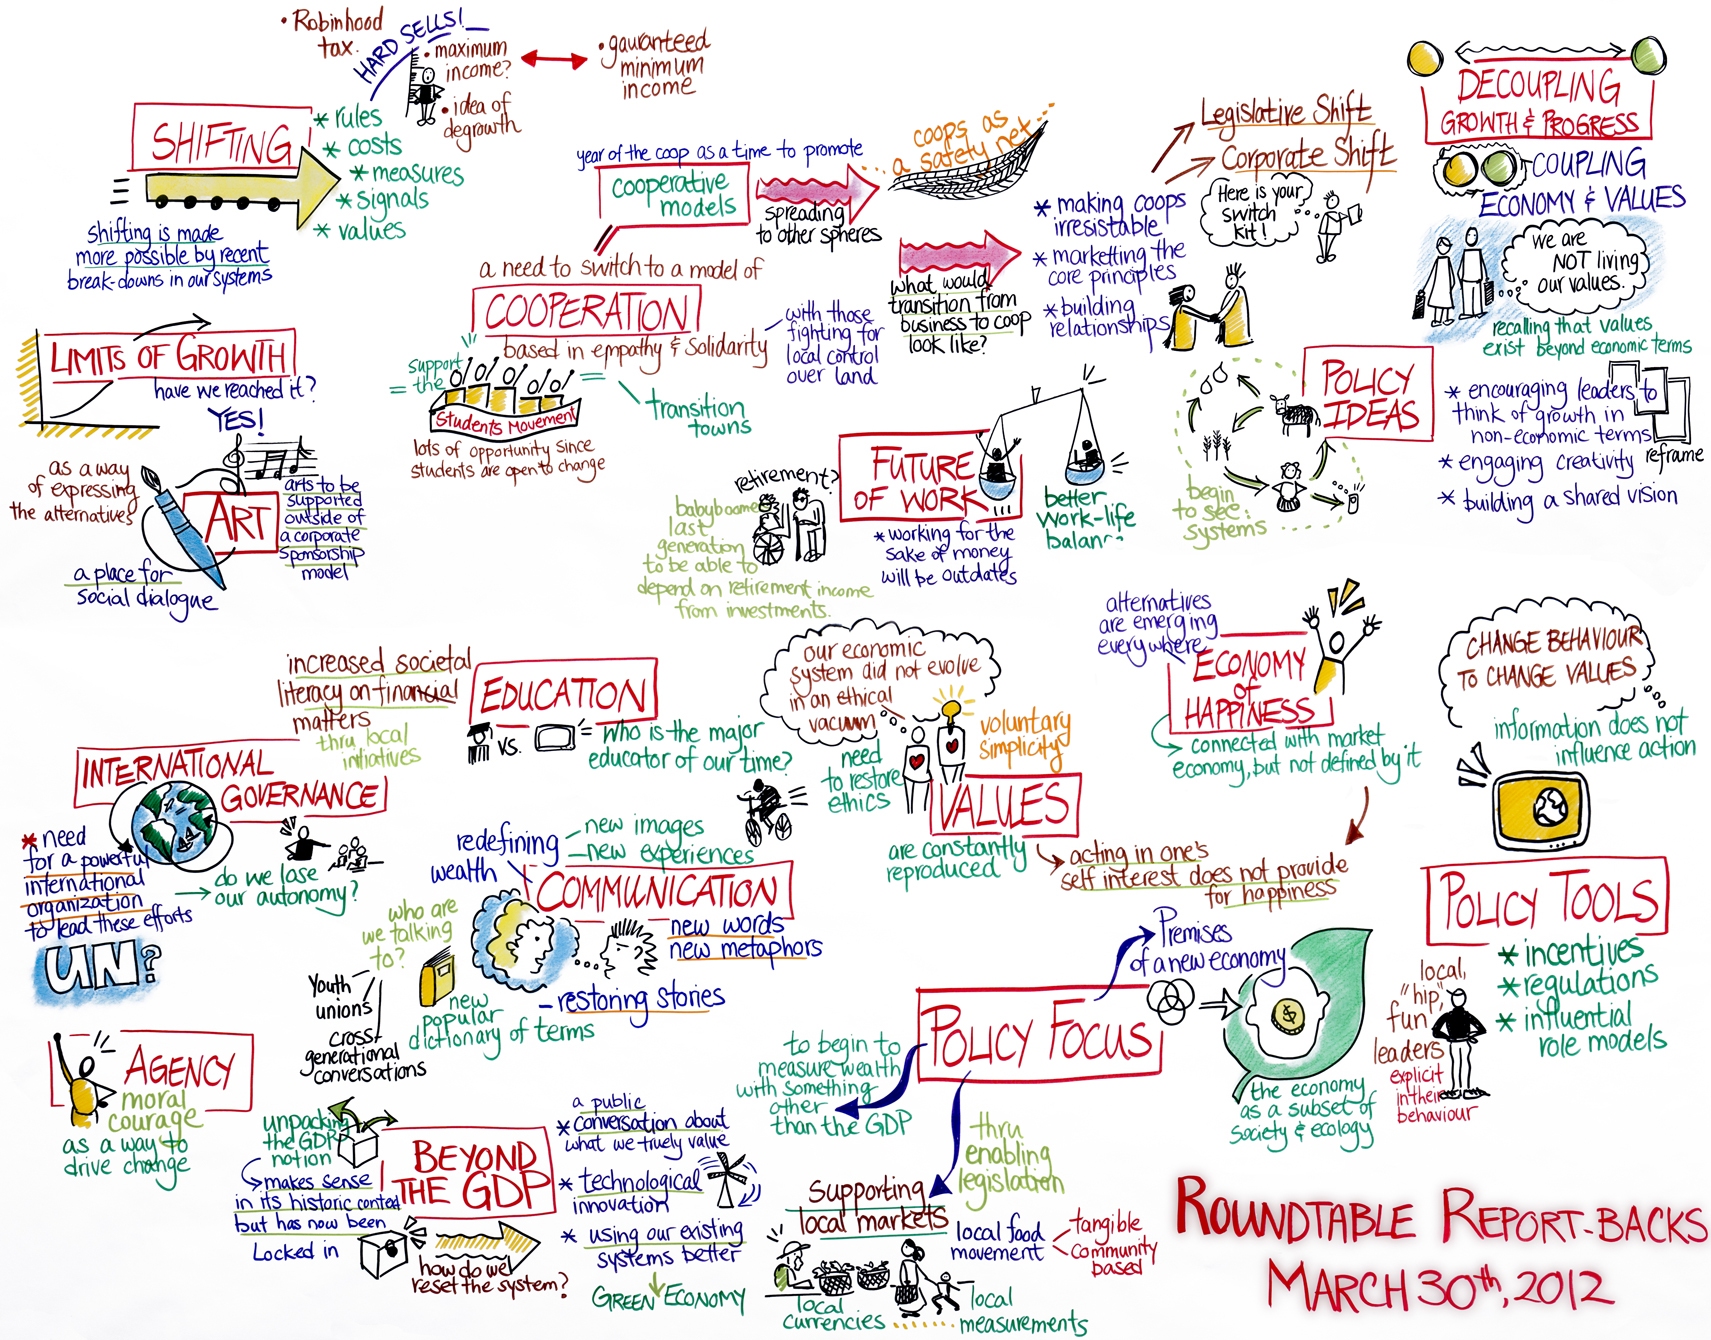 • Robinhood
tax.
HARD SELLS!
• maximum
income?
• idea of
degrowth
• gauranteed
minimum
income
SHIFTING
* rules
* costs
* measures
* signals
* values
shifting is made
more possible by recent
break-downs in our systems
year of the coop as a time to promote
cooperative
models
spreading
to other spheres
coops as
a safety net...
a need to switch to a model of
COOPERATION
based in empathy & solidarity
with those
fighting for
local control
over land
support
the
Students Movement
lots of opportunity since
students are open to change
transition
towns
what would
transition from
business to coop
look like?
* making coops
irresistable
* marketting the
core principles
* building
relationships
Legislative Shift
Corporate Shift
Here is your
switch
kit!
DECOUPLING
GROWTH & PROGRESS
COUPLING
ECONOMY & VALUES
we are
NOT living
our values.
recalling that values
exist beyond economic terms
LIMITS OF GROWTH
have we reached it?
YES!
as a way
of expressing
the alternatives
ART
arts to be
supported
outside of
a corporate
sponsorship
model
a place for
social dialogue
retirement?
babyboomers
last
generation
to be able to
depend on retirement income
from investments.
FUTURE
OF WORK...
* working for the
sake of money
will be outdates
better
work-life
balance
POLICY
IDEAS
begin
to see
systems
* encouraging leaders to
think of growth in
non-economic terms
reframe
* engaging creativity
* building a shared vision
increased societal
literacy on financial
matters
thru local
initiatives
EDUCATION
VS.
who is the major
educator of our time?
our economic
system did not evolve
in an ethical
vacuum
need
to restore
ethics
voluntary
simplicity
VALUES
are constantly
reproduced
acting in one's
self interest does not provide
for happiness
alternatives
are emerging
everywhere
ECONOMY
of
HAPPINESS
connected with market
economy, but not defined by it
CHANGE BEHAVIOUR
TO CHANGE VALUES
information does not
influence action
INTERNATIONAL
GOVERNANCE
* need
for a powerful
international
organization
to lead these efforts
UN?
do we lose
our autonomy?
redefining
wealth
new images
new experiences
COMMUNICATION
new words
new metaphors
- restoring stories
who are
we talking
to?
Youth
unions
cross
generational
conversations
new
popular
dictionary of terms
POLICY TOOLS
* incentives
* regulations
* influential
role models
local,
"hip",
fun
leaders
explicit
in their
behaviour
Premises
of a new economy
POLICY FOCUS
$
the economy
as a subset of
society & ecology
to begin to
measure wealth
with something
other
than the GDP
thru
enabling
legislation
AGENCY
moral
courage
as a way to
drive change
unpacking
the GDP
notion
makes sense
in its historic context
but has now been
Locked in
BEYOND
THE GDP
how do we
reset the system?
a public
* conversation about
what we truely value
* technological
innovation
* using our existing
systems better
GREEN ECONOMY
Supporting
local markets
local food
movement
tangible
community
based
local
currencies
local
measurements
ROUNDTABLE REPORT-BACKS
MARCH 30th, 2012